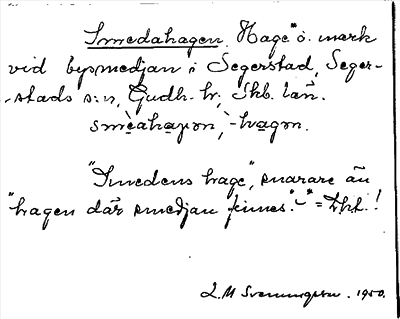 Smedahagen. "Hage" o. mark
vid bysmedjan i Segerstad, Seger-
-stads s:n, Gudh. hr, Skb. län.
smèahaɡɷn, -hagɷn.
"Smedens hage", snarare än
"hagen där smedjan finnes".
L. M. Svenungsson. 1950.